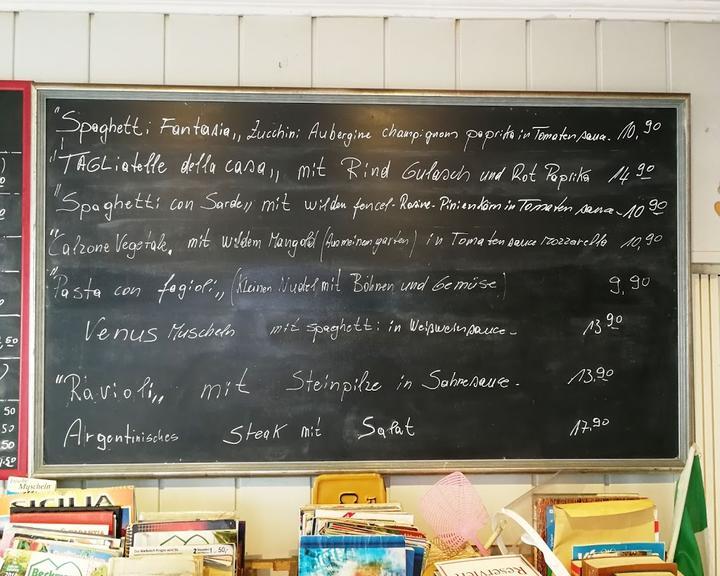 "Spaghetti Fantasia,, Zucchini Aubergine champignons paprika in Tomaten sauce. 10,90
"TAGLiatelle della casa,, mit Rind Gulasch und Rot Paprika 14,90
"Spaghetti con Sarde,, mit wilden fencel-Rosine-Pinienkärn in Tomaten sauce 10,90
"Calzone Vegetale, mit wildem Mangold (Aus meinen garten) in Tomaten sauce mozzarella 10,90
"Pasta con fagioli,, (Kleinen Nudel mit Bohnen und Gemüse) 9,90
Venus Muscheln mit spaghetti in Weißweinsauce- 13,90
"Ravioli,, mit Steinpilze in Sahnesauce. 13,90
Argentinisches Steak mit Salat 17,90
50
50
50
Muscheln
SICILIA
50,-
Reserviert